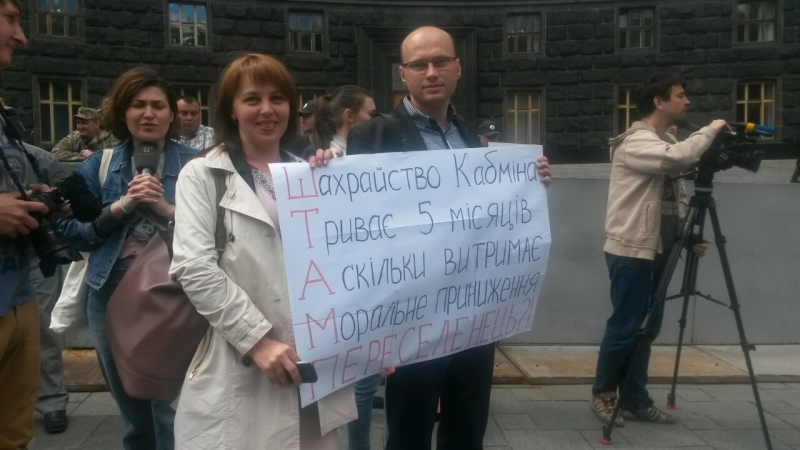 Шахрайство Кабміна
Триває 5 місяців
А скільки витримає
Моральне приниження
ПЕРЕСЕЛЕНЕЦЬ?!